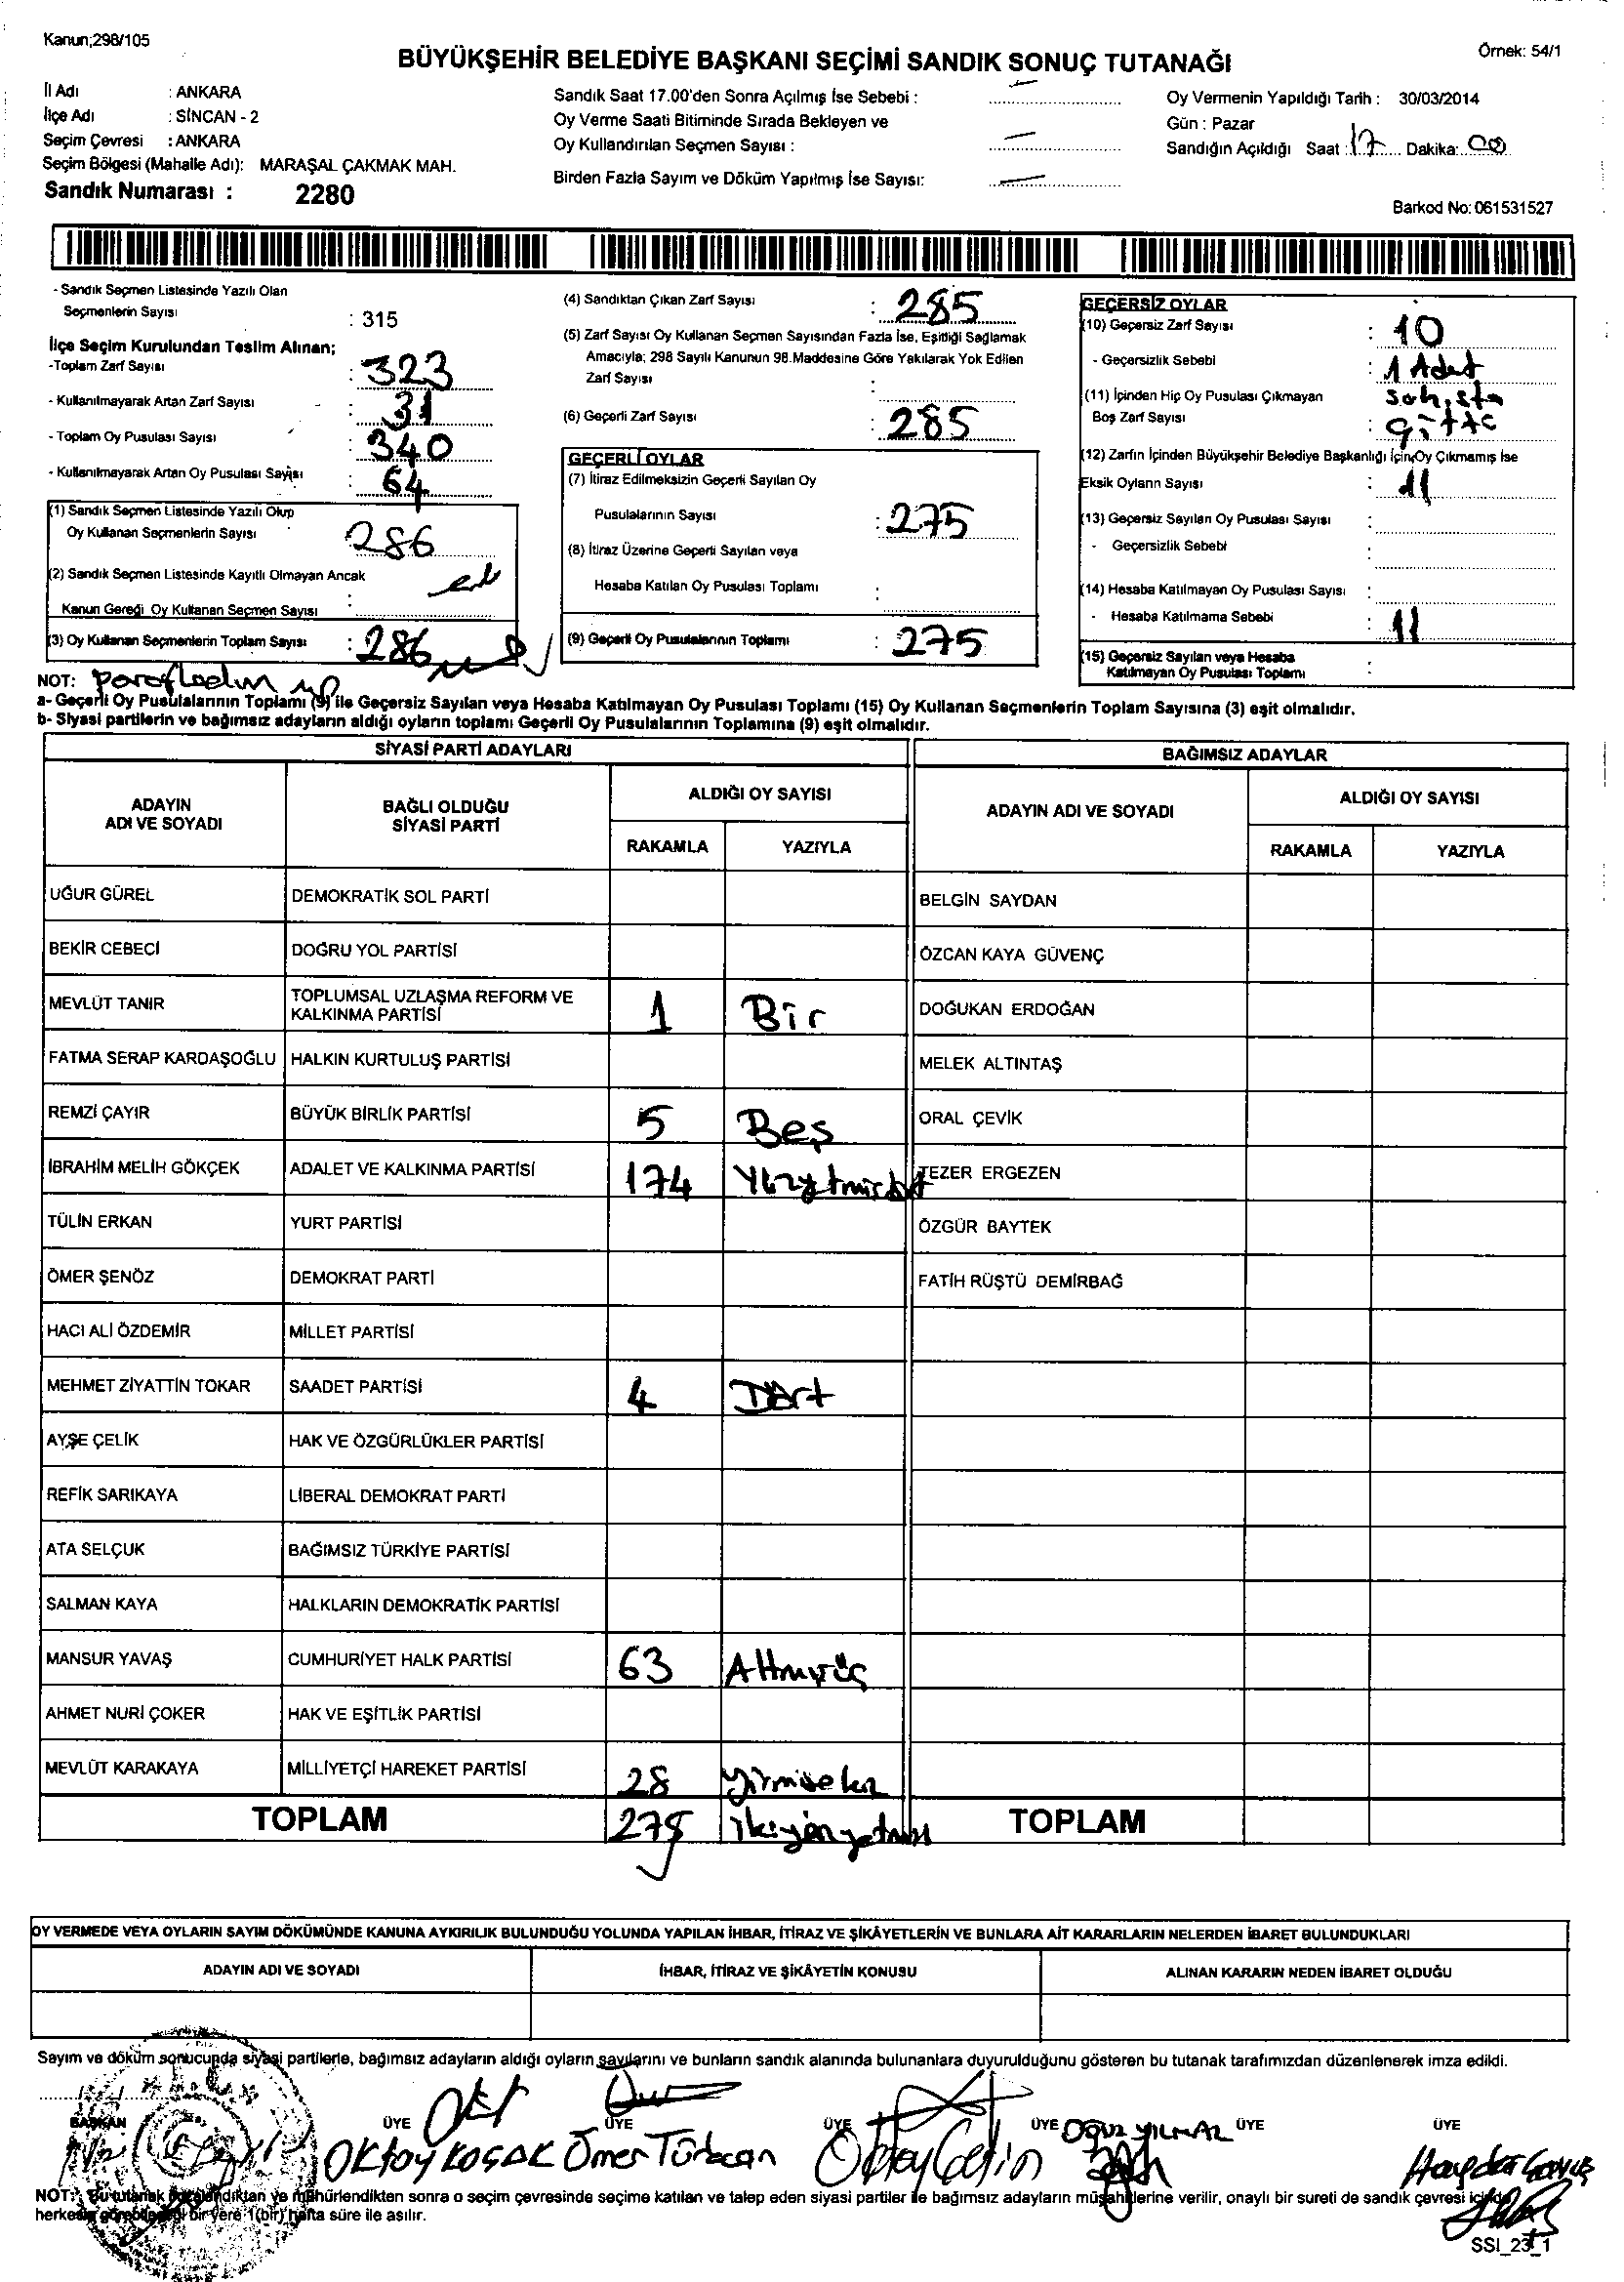 Kanun;298/105
BÜYÜKŞEHİR BELEDİYE BAŞKANI SEÇİMİ SANDIK SONUÇ TUTANAĞI
Örnek: 54/1
İl Adı : ANKARA
İlçe Adı : SİNCAN - 2
Seçim Çevresi : ANKARA
Seçim Bölgesi (Mahalle Adı): MARAŞAL ÇAKMAK MAH.
Sandık Numarası : 2280
Sandık Saat 17.00'den Sonra Açılmış İse Sebebi :
Oy Verme Saati Bitiminde Sırada Bekleyen ve
Oy Kullandırılan Seçmen Sayısı :
Birden Fazla Sayım ve Döküm Yapılmış İse Sayısı:
Oy Vermenin Yapıldığı Tarih : 30/03/2014
Gün : Pazar
Sandığın Açıldığı Saat : 17 Dakika: 00
Barkod No: 061531527
- Sandık Seçmen Listesinde Yazılı Olan
Seçmenlerin Sayısı : 315
İlçe Seçim Kurulundan Teslim Alınan;
-Toplam Zarf Sayısı : 323
- Kullanılmayarak Artan Zarf Sayısı : 31
- Toplam Oy Pusulası Sayısı : 340
- Kullanılmayarak Artan Oy Pusulası Sayısı : 64
(1) Sandık Seçmen Listesinde Yazılı Olup
Oy Kullanan Seçmenlerin Sayısı 286
(2) Sandık Seçmen Listesinde Kayıtlı Olmayan Ancak
Kanun Gereği Oy Kullanan Seçmen Sayısı :
(3) Oy Kullanan Seçmenlerin Toplam Sayısı : 286
(4) Sandıktan Çıkan Zarf Sayısı : 285
(5) Zarf Sayısı Oy Kullanan Seçmen Sayısından Fazla İse, Eşitliği Sağlamak
Amacıyla; 298 Sayılı Kanunun 98.Maddesine Göre Yakılarak Yok Edilen
Zarf Sayısı :
(6) Geçerli Zarf Sayısı : 285
GEÇERLİ OYLAR
(7) İtiraz Edilmeksizin Geçerli Sayılan Oy
Pusulalarının Sayısı : 275
(8) İtiraz Üzerine Geçerli Sayılan veya
Hesaba Katılan Oy Pusulası Toplamı :
(9) Geçerli Oy Pusulalarının Toplamı : 275
GEÇERSİZ OYLAR
(10) Geçersiz Zarf Sayısı : 10
- Geçersizlik Sebebi : 1 Adet
(11) İçinden Hiç Oy Pusulası Çıkmayan
Boş Zarf Sayısı :
(12) Zarfın İçinden Büyükşehir Belediye Başkanlığı İçin Oy Çıkmamış İse
Eksik Oyların Sayısı : 11
(13) Geçersiz Sayılan Oy Pusulası Sayısı :
- Geçersizlik Sebebi :
(14) Hesaba Katılmayan Oy Pusulası Sayısı :
- Hesaba Katılmama Sebebi : 11
(15) Geçersiz Sayılan veya Hesaba
Katılmayan Oy Pusulası Toplamı :
NOT: parafladım
a- Geçerli Oy Pusulalarının Toplamı (9) ile Geçersiz Sayılan veya Hesaba Katılmayan Oy Pusulası Toplamı (15) Oy Kullanan Seçmenlerin Toplam Sayısına (3) eşit olmalıdır.
b- Siyasi partilerin ve bağımsız adayların aldığı oyların toplamı Geçerli Oy Pusulalarının Toplamına (9) eşit olmalıdır.
SİYASİ PARTİ ADAYLARI
BAĞIMSIZ ADAYLAR
ADAYIN ADI VE SOYADI
BAĞLI OLDUĞU SİYASİ PARTİ
ALDIĞI OY SAYISI
RAKAMLA YAZIYLA
ADAYIN ADI VE SOYADI
ALDIĞI OY SAYISI
RAKAMLA YAZIYLA
UĞUR GÜREL DEMOKRATİK SOL PARTİ BELGİN SAYDAN
BEKİR CEBECİ DOĞRU YOL PARTİSİ ÖZCAN KAYA GÜVENÇ
MEVLÜT TANIR TOPLUMSAL UZLAŞMA REFORM VE KALKINMA PARTİSİ 1 Bir DOĞUKAN ERDOĞAN
FATMA SERAP KARDAŞOĞLU HALKIN KURTULUŞ PARTİSİ MELEK ALTINTAŞ
REMZİ ÇAYIR BÜYÜK BİRLİK PARTİSİ 5 Beş ORAL ÇEVİK
İBRAHİM MELİH GÖKÇEK ADALET VE KALKINMA PARTİSİ 174 TEZER ERGEZEN
TÜLİN ERKAN YURT PARTİSİ ÖZGÜR BAYTEK
ÖMER ŞENÖZ DEMOKRAT PARTİ FATİH RÜŞTÜ DEMİRBAĞ
HACI ALİ ÖZDEMİR MİLLET PARTİSİ
MEHMET ZİYATTİN TOKAR SAADET PARTİSİ 4 Dört
AYŞE ÇELİK HAK VE ÖZGÜRLÜKLER PARTİSİ
REFİK SARIKAYA LİBERAL DEMOKRAT PARTİ
ATA SELÇUK BAĞIMSIZ TÜRKİYE PARTİSİ
SALMAN KAYA HALKLARIN DEMOKRATİK PARTİSİ
MANSUR YAVAŞ CUMHURİYET HALK PARTİSİ 63 Altmışüç
AHMET NURİ ÇOKER HAK VE EŞİTLİK PARTİSİ
MEVLÜT KARAKAYA MİLLİYETÇİ HAREKET PARTİSİ 28 Yirmisekiz
TOPLAM 275 TOPLAM
OY VERMEDE VEYA OYLARIN SAYIM DÖKÜMÜNDE KANUNA AYKIRILIK BULUNDUĞU YOLUNDA YAPILAN İHBAR, İTİRAZ VE ŞİKÂYETLERİN VE BUNLARA AİT KARARLARIN NELERDEN İBARET BULUNDUKLARI
ADAYIN ADI VE SOYADI İHBAR, İTİRAZ VE ŞİKÂYETİN KONUSU ALINAN KARARIN NEDEN İBARET OLDUĞU
Sayım ve döküm sonucunda siyasi partilerle, bağımsız adayların aldığı oyların sayılarını ve bunların sandık alanında bulunanlara duyurulduğunu gösteren bu tutanak tarafımızdan düzenlenerek imza edildi.
BAŞKAN ÜYE ÜYE ÜYE ÜYE ÜYE ÜYE
OKtay KOÇAK Ömer Türkcan Oktay Çetin OĞUZ YILMAZ
NOT: Bu tutanak düzenlendikten ve mühürlendikten sonra o seçim çevresinde seçime katılan ve talep eden siyasi partiler ile bağımsız adayların müşahitlerine verilir, onaylı bir sureti de sandık çevresi içinde
herkesin görebileceği bir yere 1(bir) hafta süre ile asılır.
SSI_23_1